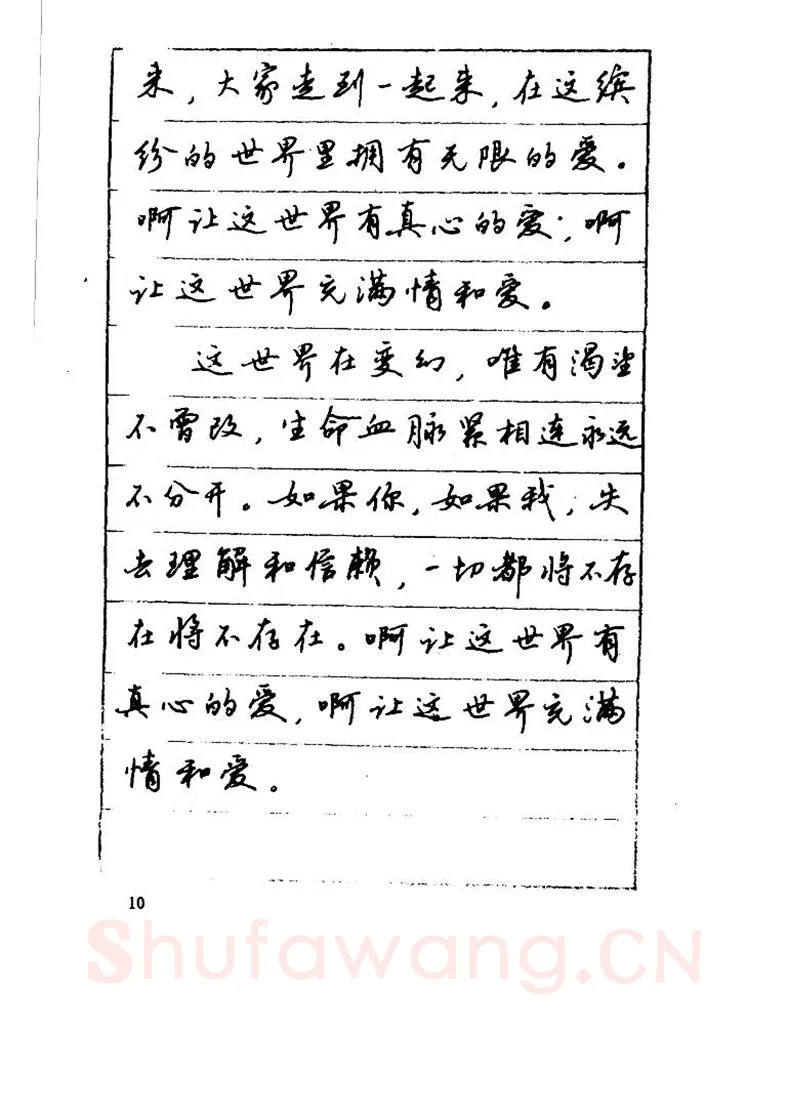 来，大家走到一起来，在这缤
纷的世界里拥有无限的爱。
啊让这世界有真心的爱；啊
让这世界充满情和爱。
这世界在变幻，唯有渴望
不曾改，生命血脉紧相连永远
不分开。如果你，如果我，失
去理解和信赖，一切都将不存
在将不存在。啊让这世界有
真心的爱，啊让这世界充满
情和爱。
10
Shufawang.CN